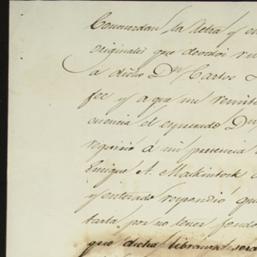 Concuerdan la letra y en
originales que devolví
a dicho Dn Carlos
fee y a que me remito
cuencia el espresado Dn
requirió á mi presencia
Enrique A. Mackintosh
y enterado respondió que
tarla por no tener fondo
que dicho libramt